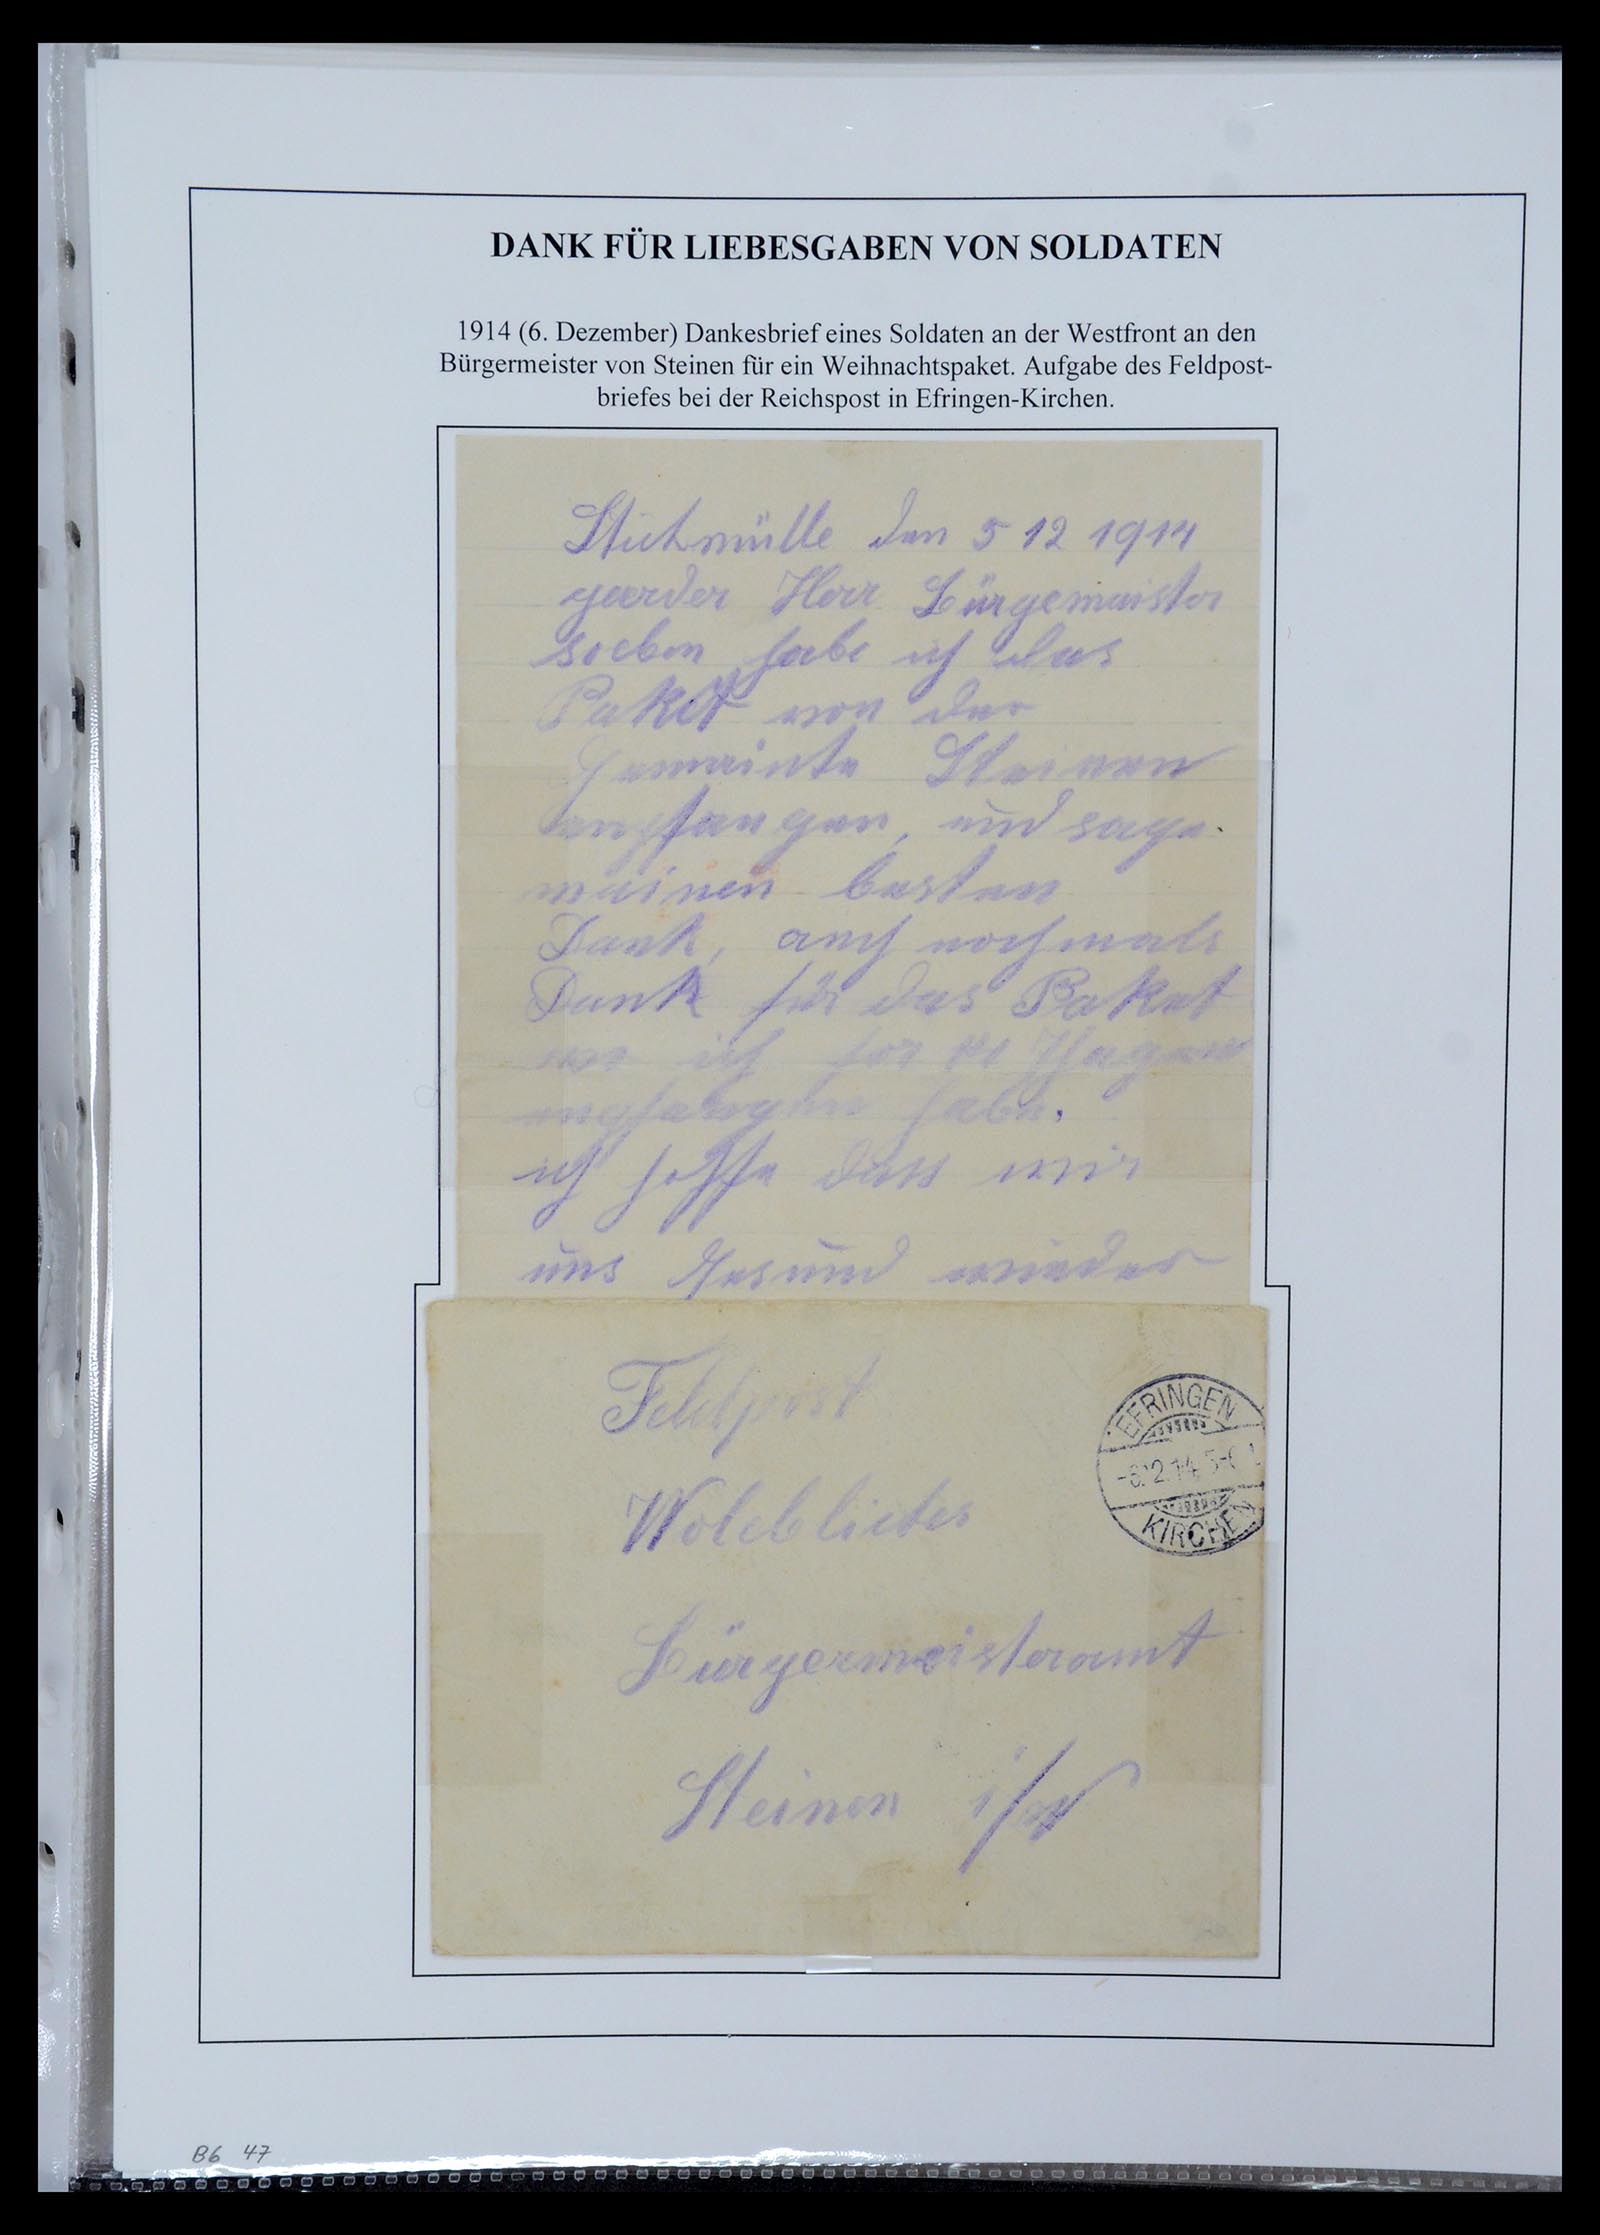 DANK FÜR LIEBESGABEN VON SOLDATEN
1914 (6. Dezember) Dankesbrief eines Soldaten an der Westfront an den
Bürgermeister von Steinen für ein Weihnachtspaket. Aufgabe des Feldpost-
briefes bei der Reichspost in Efringen-Kirchen.
den 5 12 1914
geerder Herr Bürgemeister
soeben habe ich das
Paket von der
Gemeinte Steinen
empfangen, und sage
meinen besten
Dank, auch nochmals
Dank für das Paket
ich for 14 Thagen
empfangen habe.
ich hoffe dass wir
uns Gesund wieder
Feldpost
EFRINGEN
-6.12.14.5-6
KIRCHEN
Bürgermeisteramt
Steinen i/W
B6 47